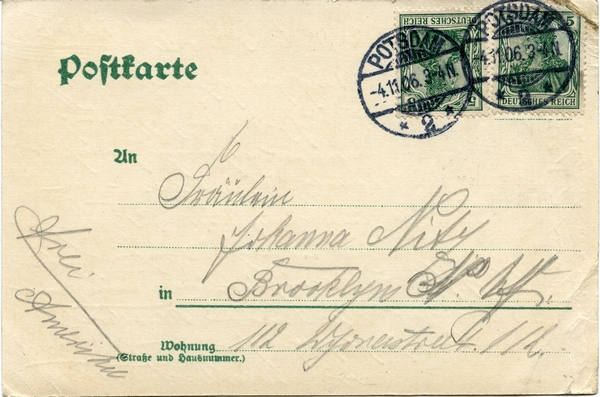 Postkarte
DEUTSCHES REICH
5
DEUTSCHES REICH
5
POTSDAM
-4.11.06. 3-4N.
* 2 *
POTSDAM
-4.11.06. 3-4N.
* 2 *
An
Fräulein
Johanna Nitz
in Brooklyn N. Y.
Wohnung
(Straße und Hausnummer.)
112
112
Amerika